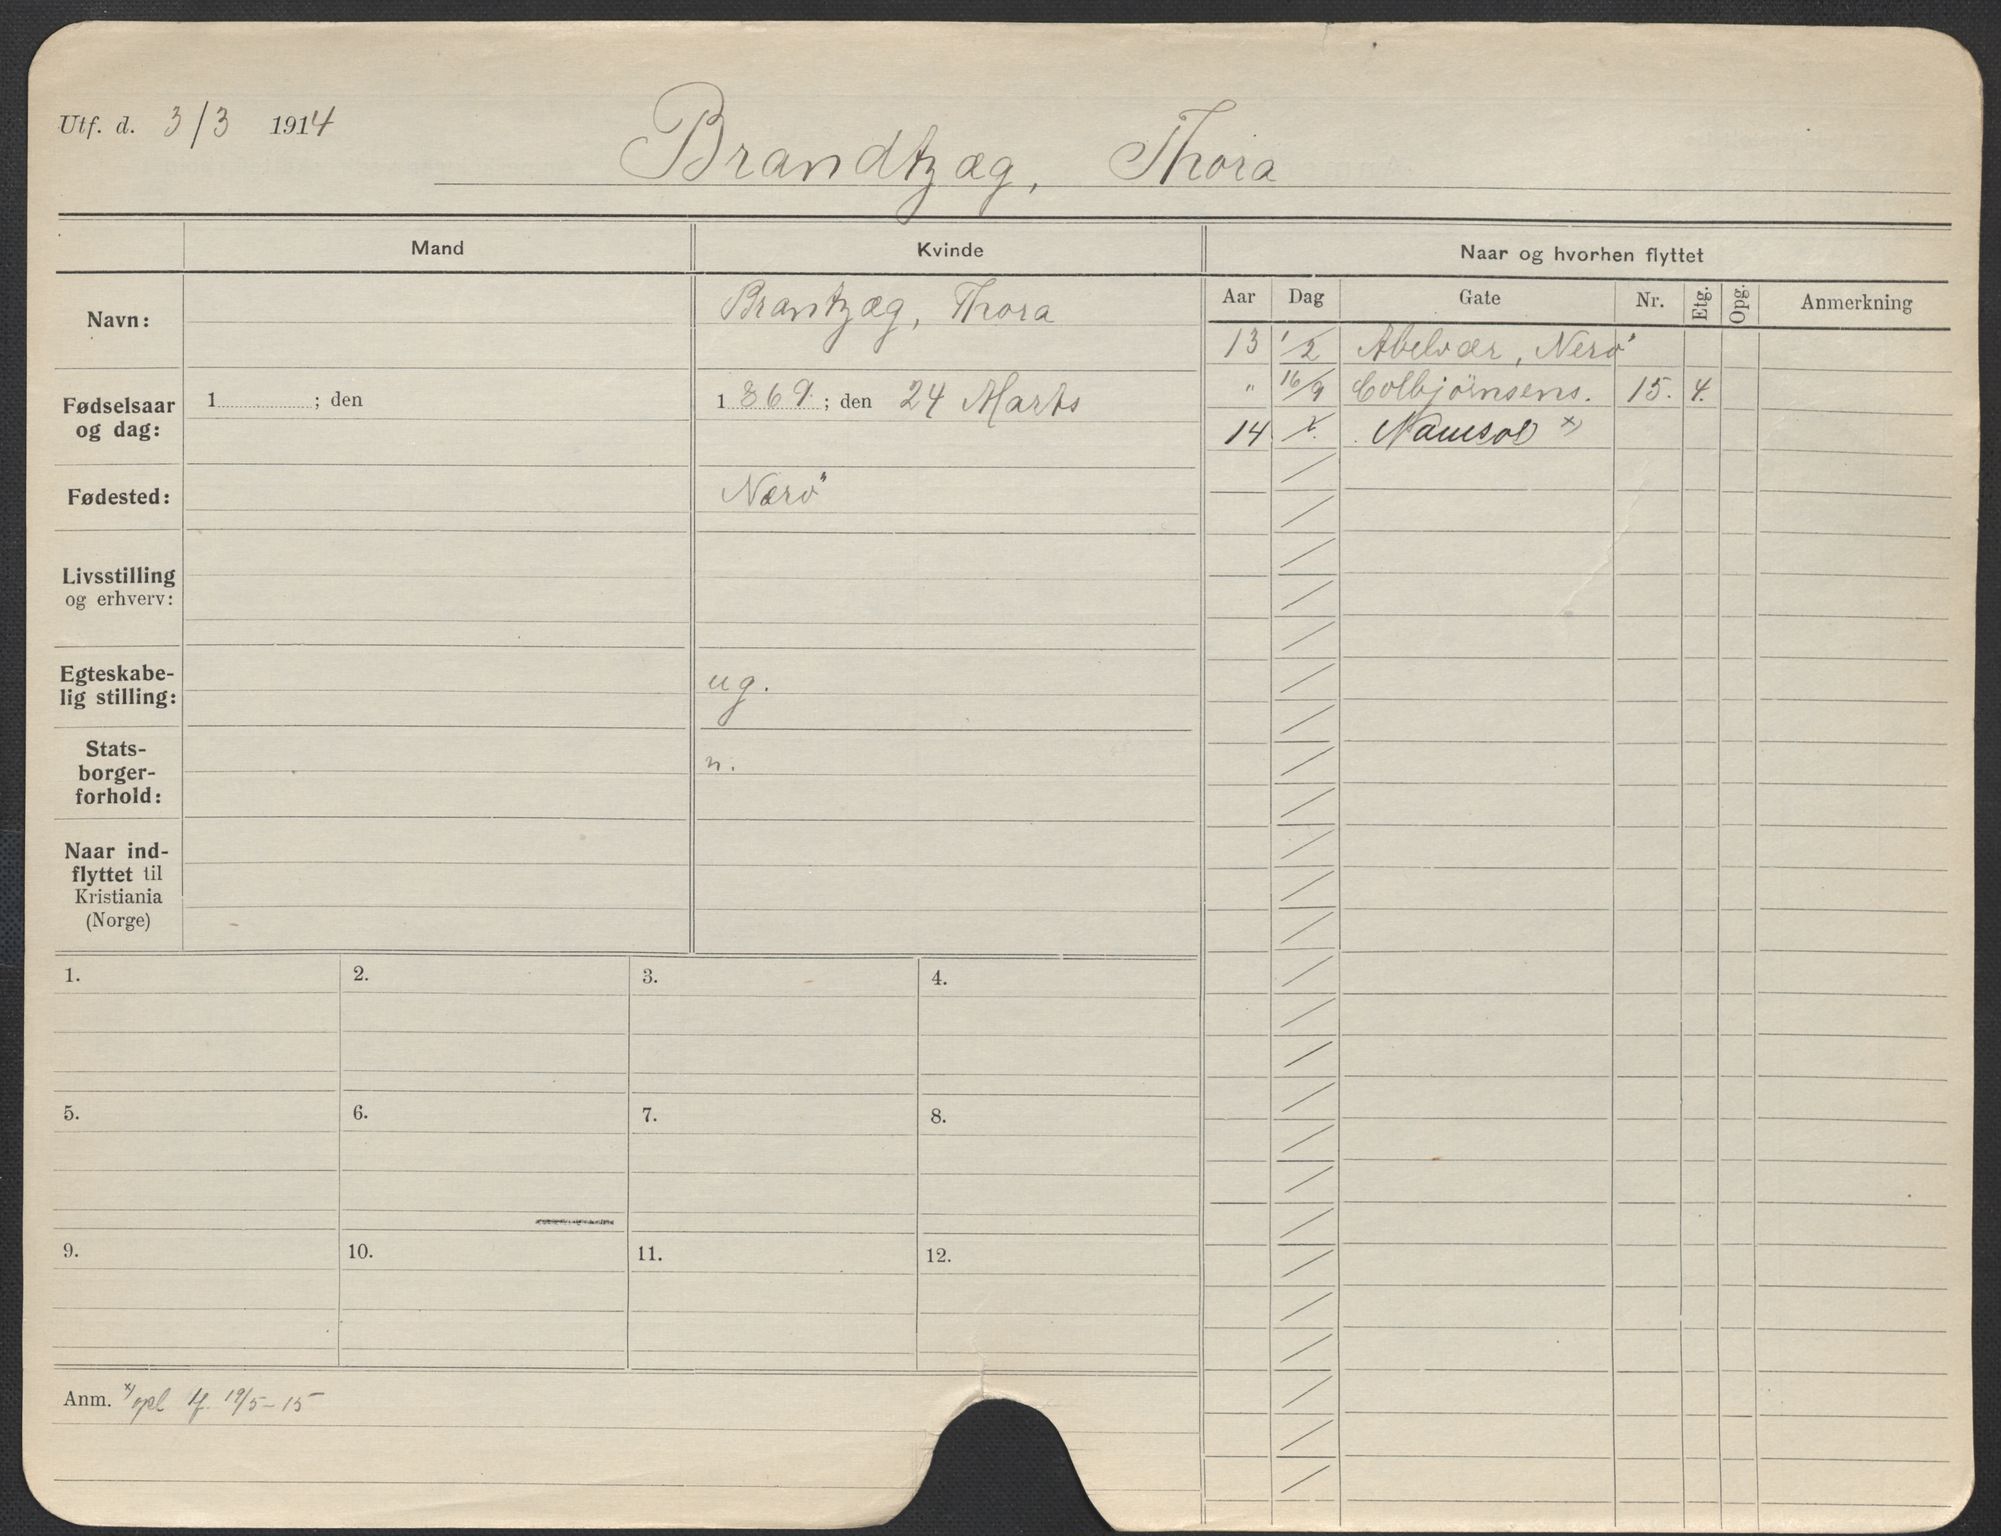 Utf. d. 3/3 1914
Brandtzæg, Thora
Mand
Kvinde
Naar og hvorhen flyttet
Aar Dag Gate Nr. Etg. Opg. Anmerkning
Navn:
Brantzæg, Thora
13 1/2 Abelvær, Nerö
" 16/9 Colbjörnsens. 15. 4.
14 x. Namsos x)
Fødselsaar
og dag:
1 ; den
1 869. ; den 24 Marts
Fødested:
Nærö
Livsstilling
og erhverv:
Egteskabe-
lig stilling:
ug.
Stats-
borger-
forhold:
n.
Naar ind-
flyttet til
Kristiania
(Norge)
1. 2. 3. 4.
5. 6. 7. 8.
9. 10. 11. 12.
Anm. x) opl 19/5-15